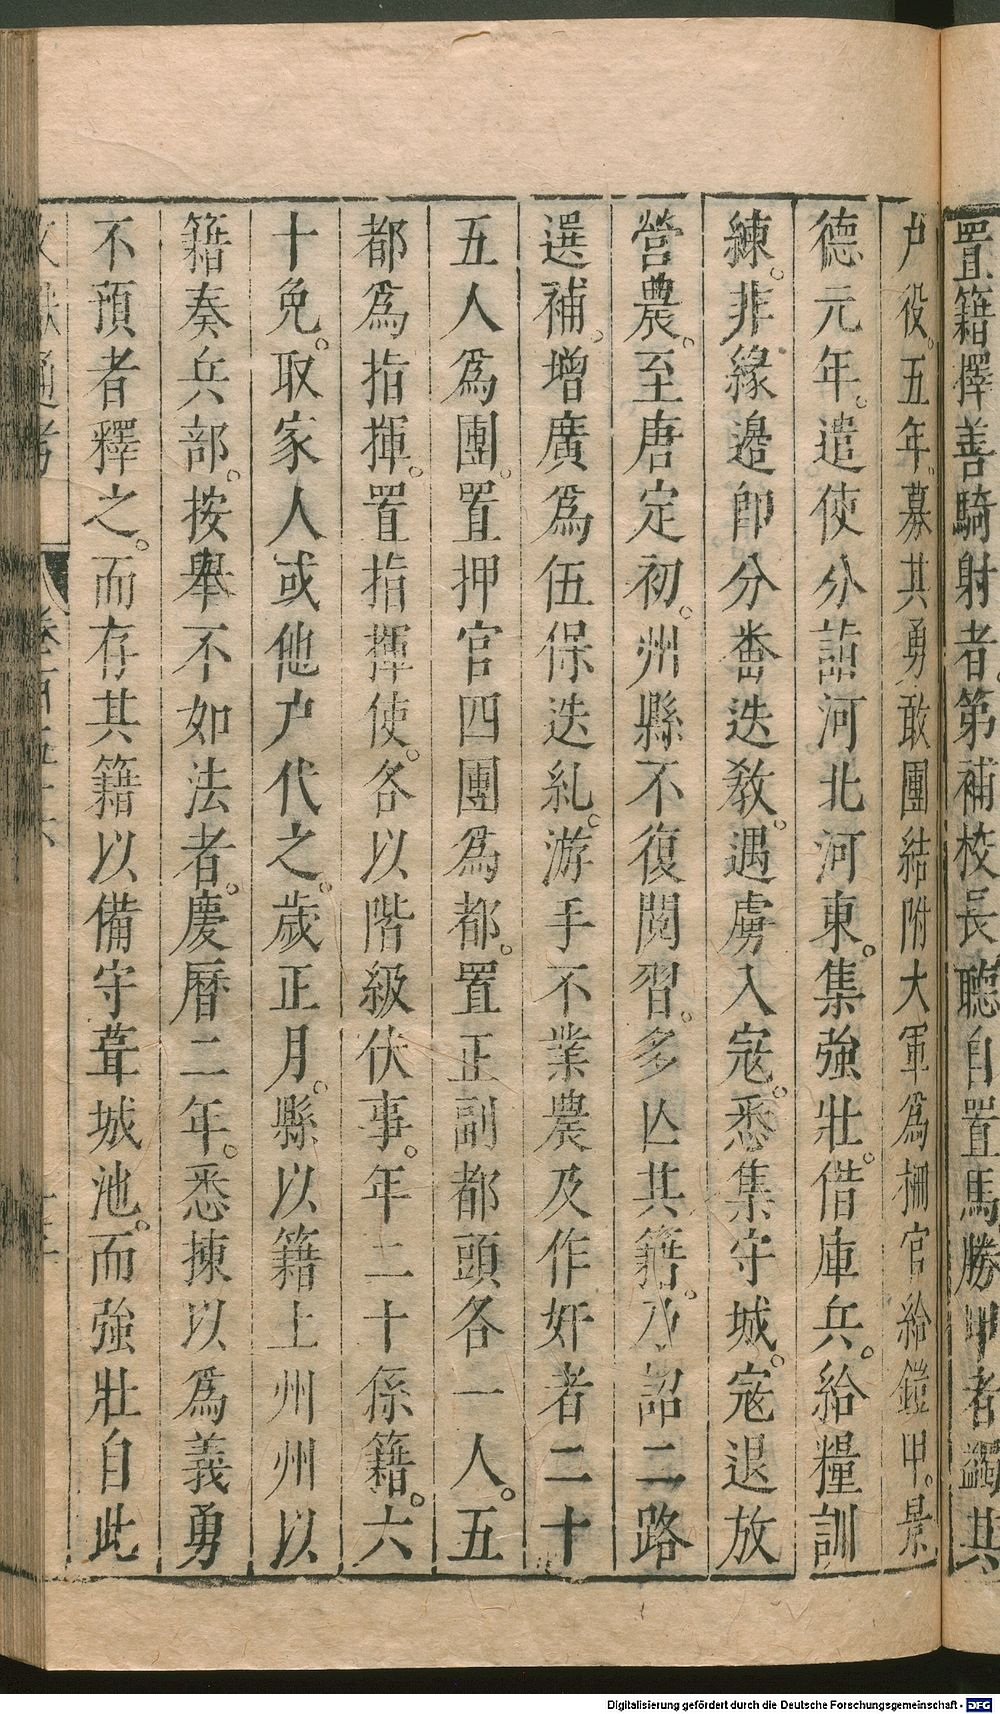 置籍擇善騎射者。第補校長聽自置馬勝甲者蠲其
户役。五年。募其勇敢團結附大軍爲柵官給鎧甲。景
德元年。遣使分詣河北河東。集強壯。借庫兵。給糧訓
練。非緣邉卽分畨迭教。遇虜入寇。悉集守城。寇退放
營農。至唐定初。州縣不復閱習。多亾其籍。乃詔二路
選補。增廣爲伍保迭糺。游手不業農及作奸者二十
五人爲團。置押官四團爲都。置正副都頭各一人。五
都爲指揮。置指揮使。各以階級伏事。年二十係籍。六
十免。取家人或他户代之。歲正月。縣以籍上州州以
籍奏兵部。按舉不如法者。慶曆二年。悉揀以爲義勇
不預者釋之。而存其籍以備守葺城池。而強壯自此
Digitalisierung gefördert durch die Deutsche Forschungsgemeinschaft - DFG